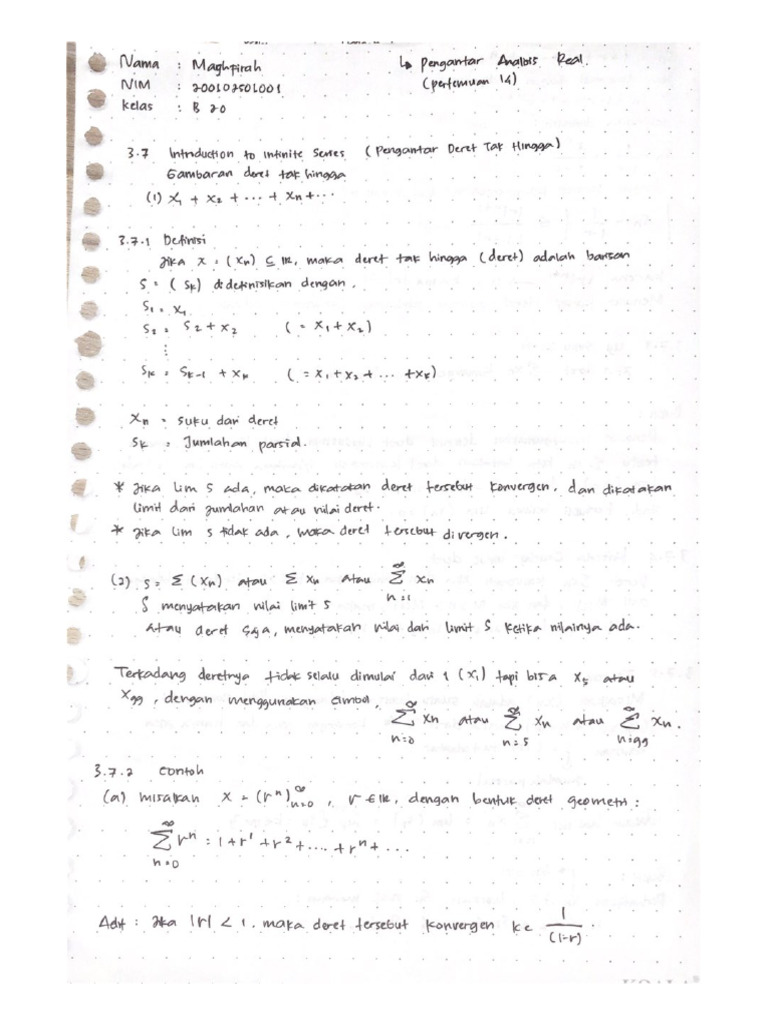 Nama : Maghfirah
NIM : 200102501001
Kelas : B 20
↳ Pengantar Analisis Real.
(pertemuan 14)
3.7 Introduction to Infinite Series (Pengantar Deret Tak Hingga)
Gambaran deret tak hingga
(1) x₁ + x₂ + ... + xₙ + ...
3.7.1 Definisi
Jika x = (xₙ) ⊆ ℝ, maka deret tak hingga (deret) adalah barisan
S = (Sₖ) didefinisikan dengan,
S₁ = x₁
S₂ = S₂ + x₂ (= x₁ + x₂)
⋮
Sₖ = Sₖ₋₁ + xₖ (= x₁ + x₂ + ... + xₖ)
xₙ = suku dari deret
Sₖ = Jumlahan parsial.
* Jika lim S ada, maka dikatakan deret tersebut konvergen, dan dikatakan
limit dari jumlahan atau nilai deret.
* Jika lim S tidak ada, maka deret tersebut divergen.
(2) S = Σ (xₙ) atau Σ xₙ atau ∞ Σ n=1 xₙ
S menyatakan nilai limit S
atau deret saja, menyatakan nilai dari limit S ketika nilainya ada.
Terkadang deretnya tidak selalu dimulai dari 1 (x₁) tapi bisa x₅ atau
x₉₉, dengan menggunakan simbol, ∞ Σ n=0 xₙ atau ∞ Σ n=5 xₙ atau ∞ Σ n=99 xₙ.
3.7.2 Contoh
(a) misalkan X = (rⁿ)∞ n=0, r ∈ ℝ, dengan bentuk deret geometri:
∞ Σ n=0 rⁿ = 1 + r¹ + r² + .... + rⁿ + ...
Adit : Jika |r| < 1, maka deret tersebut konvergen ke 1/(1-r).